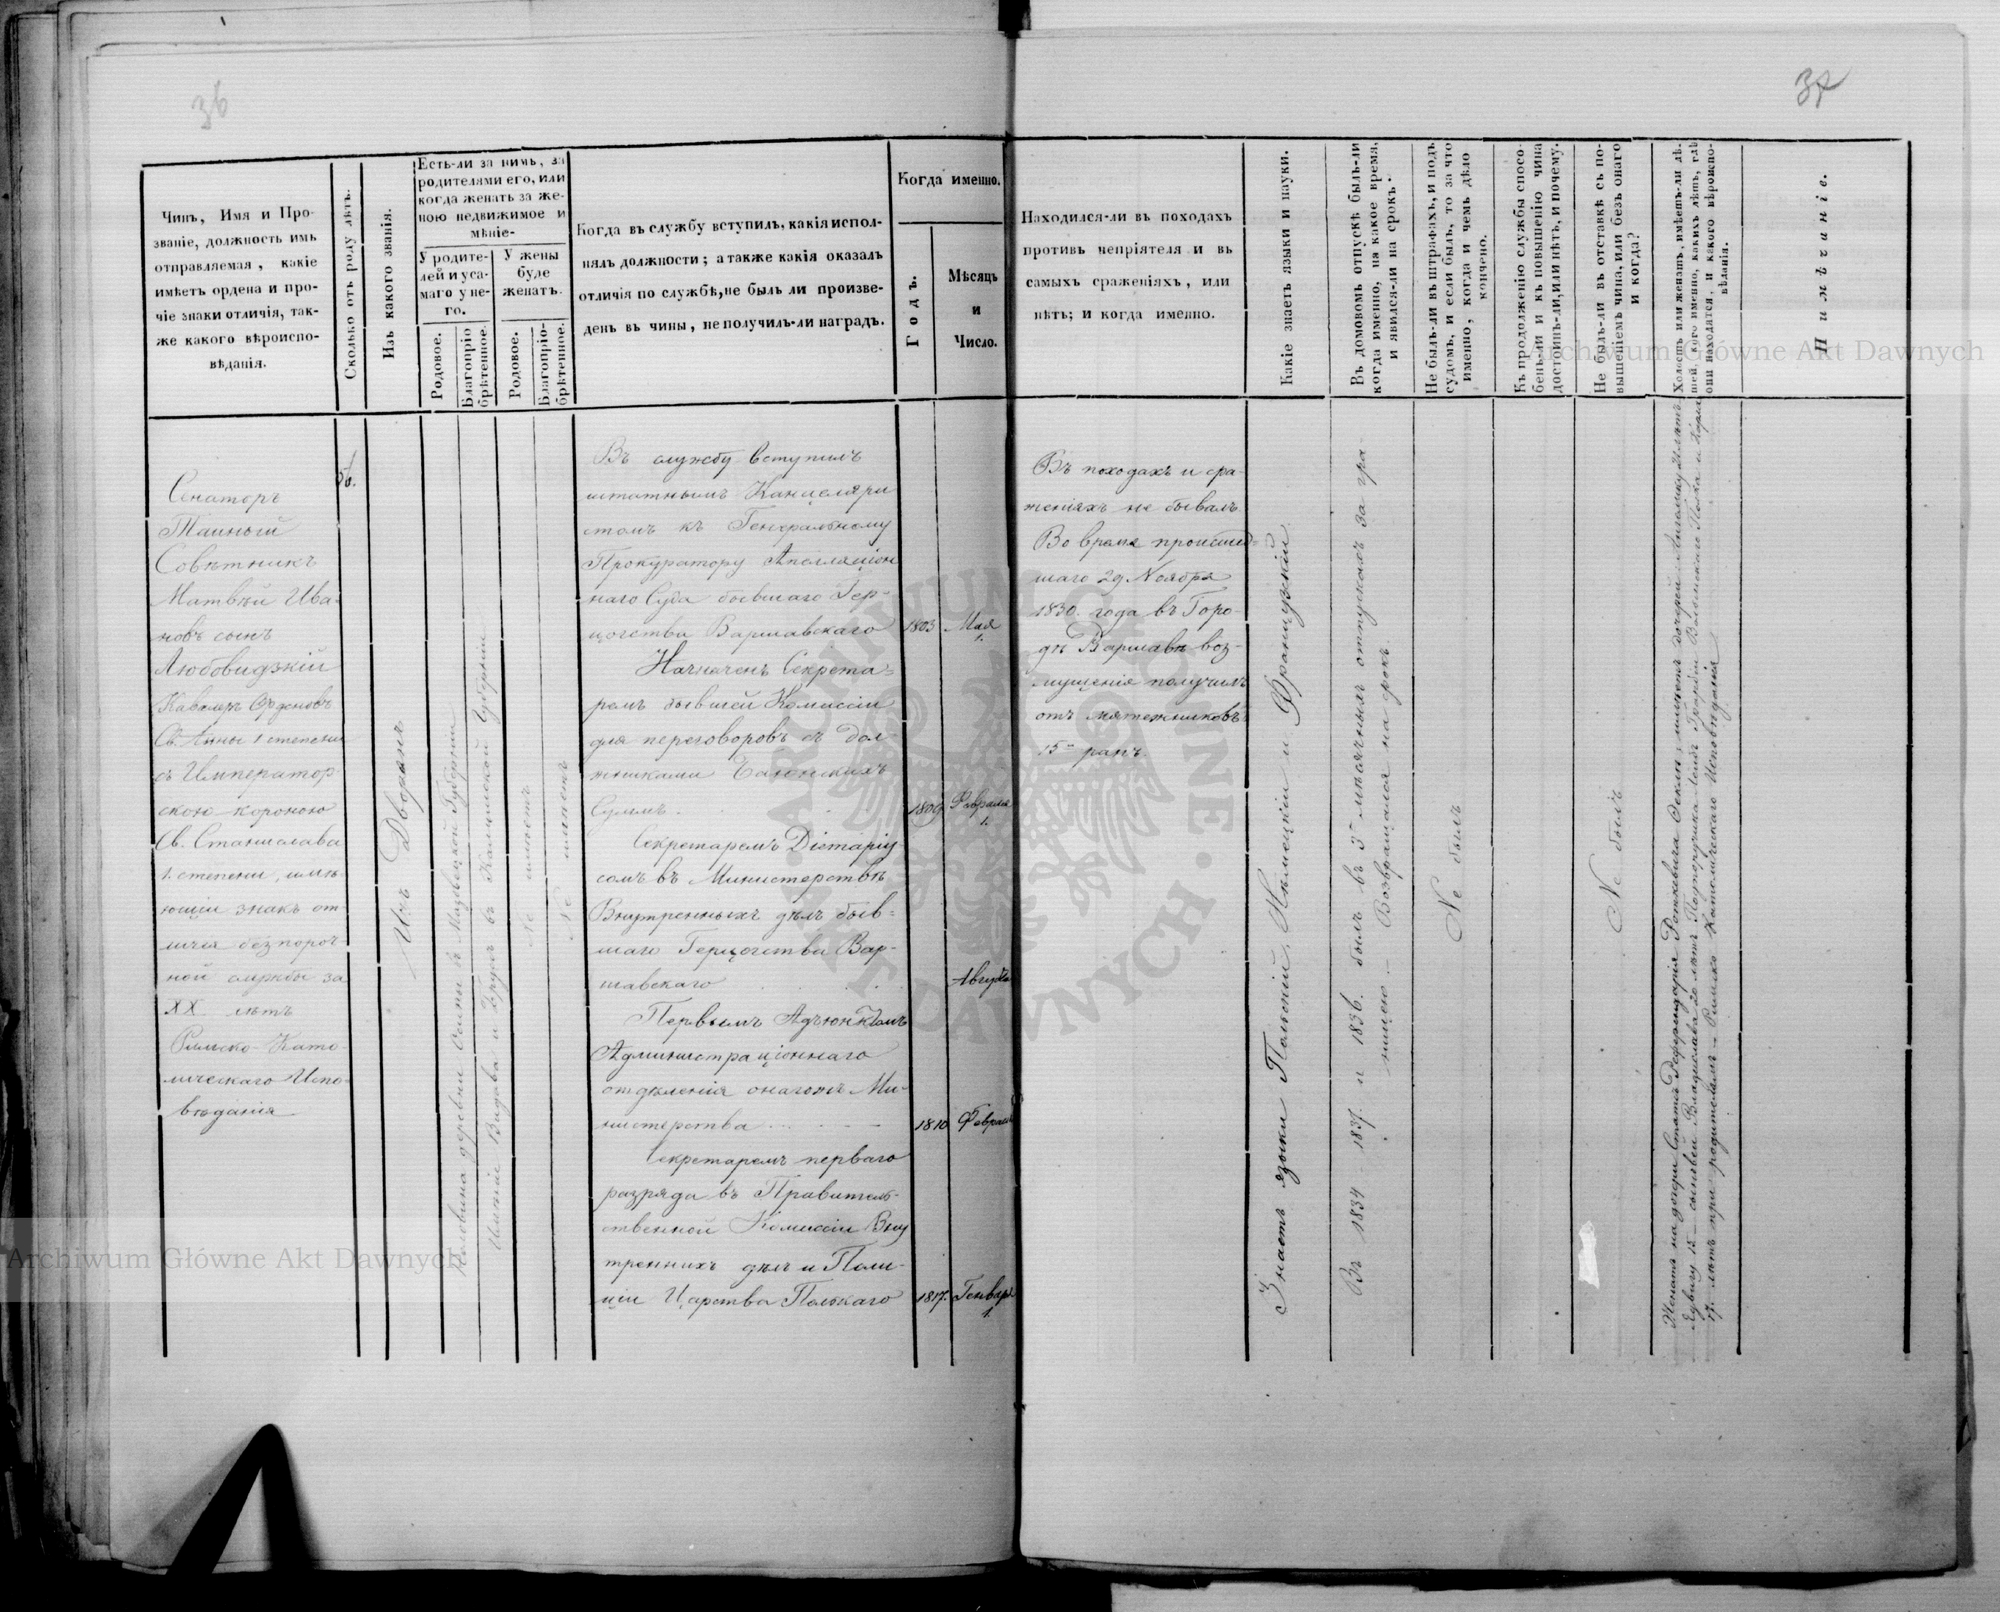 36
37
Чинъ, Имя и Про-
званіе, должность имъ
отправляемая, какіе
имѣетъ ордена и про-
чіе знаки отличія, так-
же какого вѣроиспо-
вѣданія.
Сколько отъ роду лѣтъ.
Изъ какого званія.
Есть-ли за нимъ, за
родителями его, или
когда женатъ за же-
ною недвижимое и
мѣніе-
У родите-
лей и уса-
маго у не-
го.
У жены
буде
женатъ.
Родовое.
Благопріо
брѣтенное.
Родовое.
Благопріо-
брѣтенное.
Когда въ службу вступилъ, какія испол-
нялъ должности; а также какія оказалъ
отличія по службѣ, не былъ ли произве-
денъ въ чины, не получилъ-ли наградъ.
Когда именно.
Годъ.
Мѣсяцъ
и
Число.
Находился-ли въ походахъ
противъ непріятеля и въ
самыхъ сраженіяхъ, или
нѣтъ; и когда именно.
Какіе знаетъ языки и науки.
Въ домовомъ отпускѣ былъ-ли
когда именно, на какое время,
и явился-ли на срокъ.
Не былъ-ли въ штрафахъ, и подъ
судомъ, и если былъ, то за что
именно, когда и чемъ дѣло
кончено.
Къ продолженію службы спосо-
бенъ-ли и къ повышенію чина
достоинъ-ли, или нѣтъ, и почему.
Не былъ-ли въ отставкѣ съ по-
вышеніемъ чина, или безъ онаго
и когда?
Холостъ или женатъ, имѣетъ-ли дѣ-
тей, кого именно, какихъ лѣтъ, гдѣ
они находятся, и какого вѣроиспо-
вѣданія.
Примѣчаніе.
Сенаторъ
Тайный
Совѣтникъ
Матвѣй Ива-
новъ сынъ
Любовидзкій
Кавалеръ Орденовъ
Св. Анны 1 степени
съ Император
скою короною
Св. Станислава
1. степени, имѣ-
ющій знакъ от
личія безпороч
ной службы за
XX лѣтъ
Римско-Като
лическаго Испо-
вѣданія
56.
Изъ Дворянъ
Половина деревни въ Мазовецкой Губерніи
Имѣніе Видава и въ Калишской Губерніи
Не имѣетъ
Не имѣетъ
Въ службу вступилъ
штатнымъ Канцеляри
стомъ къ Генеральному
Прокуратору Апелляціон
наго Суда бывшаго Гер-
цогства Варшавскаго
1803 Мая
1.
Назначенъ Секрета-
ремъ бывшей Комиссіи
для переговоровъ съ дол-
жниками Баіонскихъ
Суммъ.
1809. Февраля
1.
Секретаремъ Діетаріу
сомъ въ Министерствѣ
Внутренныхъ дѣлъ быв-
шаго Герцогства Вар-
шавскаго
Августа
Первымъ Адъюнктомъ
Администраціоннаго
отдѣленія онагожъ Ми-
нистерства
1810 Февраля
Секретаремъ перваго
разряда въ Правитель-
ственной Комиссіи Вну
треннихъ дѣлъ и Поли-
ціи Царства Польскаго
1817. Генваря
1.
Въ походахъ и сра-
женіяхъ не бывалъ
Во время происшед-
шаго 29 Ноября
1830. года въ Горо-
дѣ Варшавѣ воз-
мущенія получилъ
отъ мятежниковъ
15 ранъ.
Знаетъ языки Польскій, Нѣмецкій и Французскій
Въ 1834 1837. и 1836. былъ въ 3 мѣсячныхъ отпускахъ за гра-
ницею - Возвращался на срокъ
Не былъ
Не былъ
Женатъ на дочери Статсъ Референдарія имѣетъ дочерей Ангелику лѣтъ
Ядвигу 15 - сыновей Владислава 20 лѣтъ Подпоручика Гвардіи Волынскаго Полка и Карла
17. лѣтъ при родителяхъ - Римско Католическаго Исповѣданія
Archiwum Główne Akt Dawnych
Archiwum Główne Akt Dawnych
ARCHIWUM GŁÓWNE AKT DAWNYCH